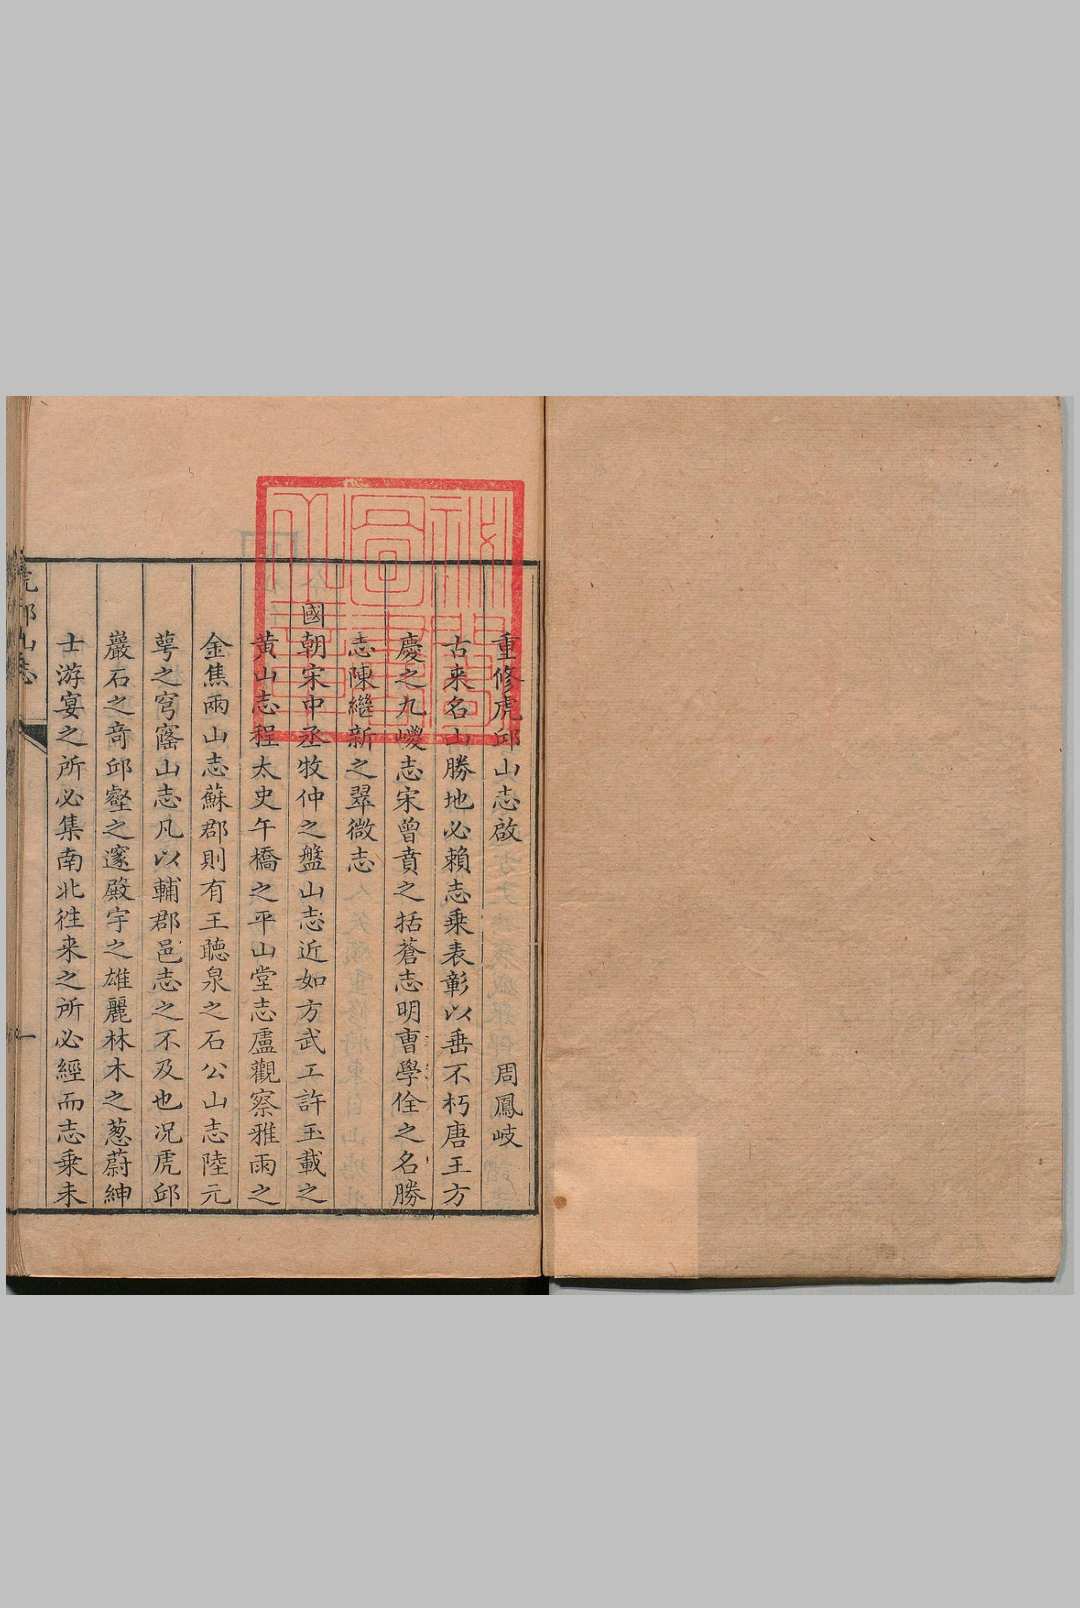 重修虎邱山志啟
周鳳岐
古来名山勝地必賴志乗表彰以垂不朽唐王方
慶之九嵕志宋曾賁之括蒼志明曹學佺之名勝
志陳繼新之翠微志
國朝宋中丞牧仲之盤山志近如方武工許玉載之
黄山志程太史午橋之平山堂志盧觀察雅雨之
金焦兩山志蘇郡則有王聴泉之石公山志陸元
萼之穹窿山志凡以輔郡邑志之不及也况虎邱
巖石之竒邱壑之邃殿宇之雄麗林木之葱蔚紳
士游宴之所必集南北徃来之所必經而志乗未
虎邱山志
一